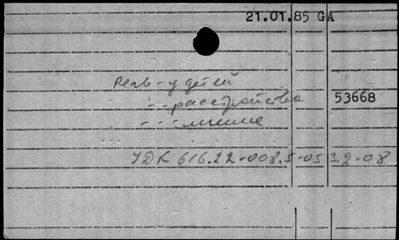 21.01.85 GA
Речь - у детей
- - - расстройства 53668
- - - лечение
УДК 616.22-008.5-053.2-08